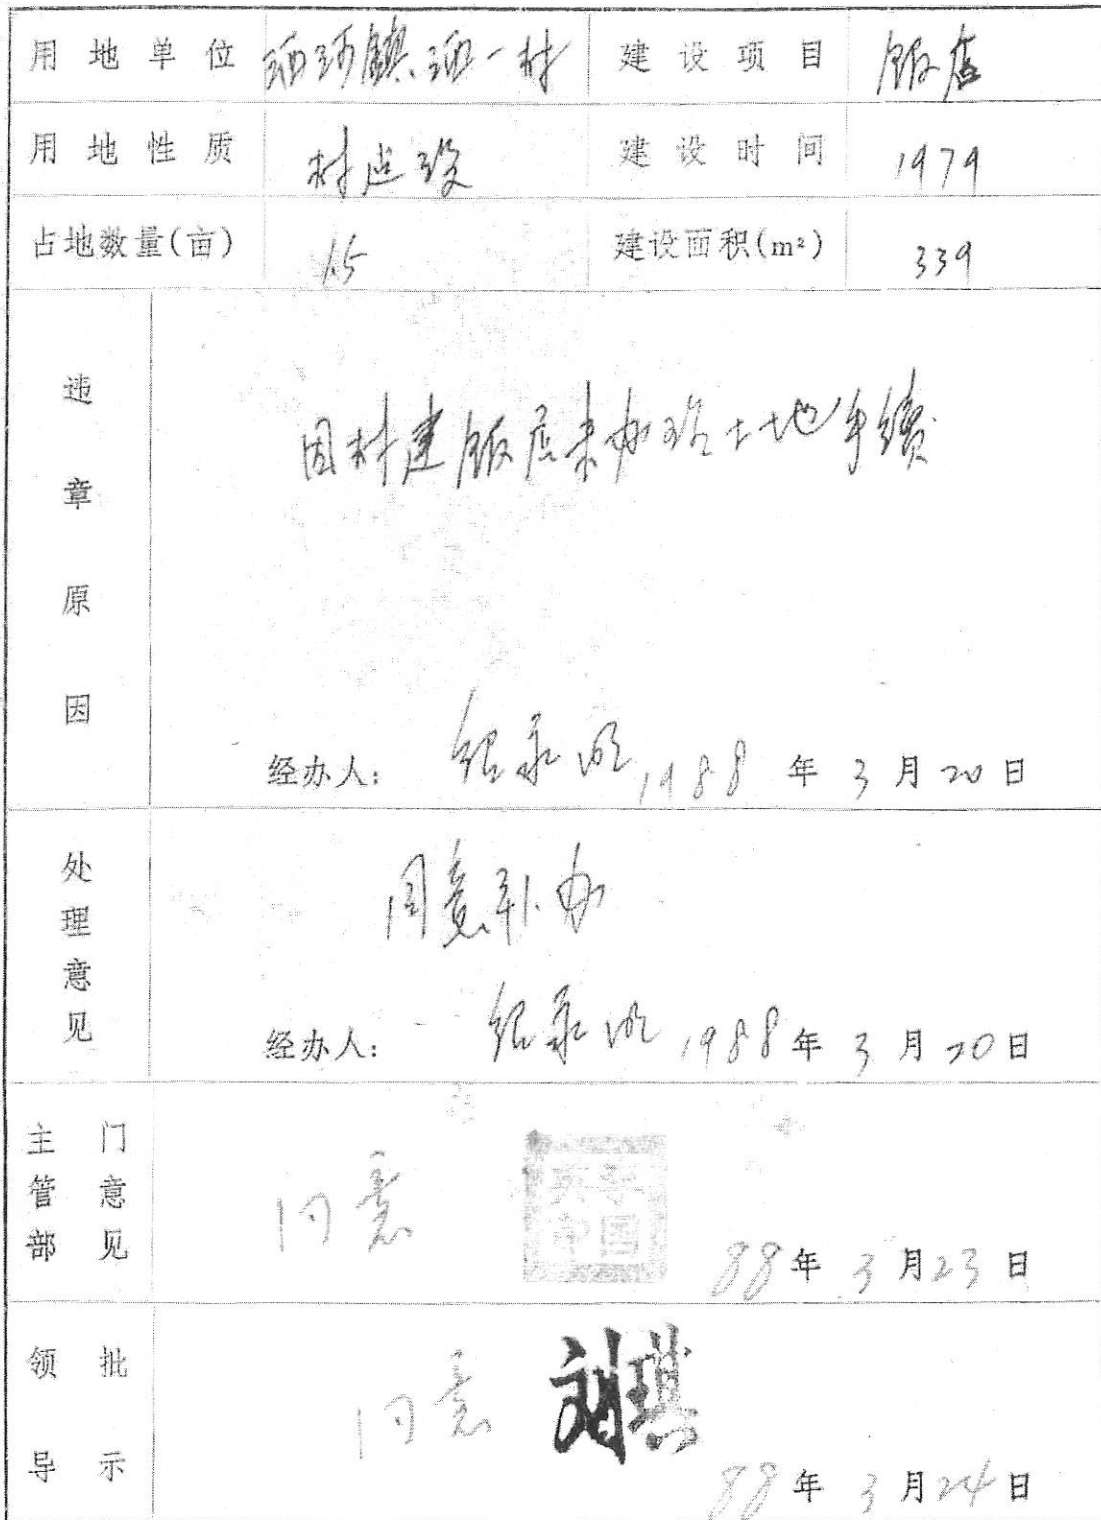 用地单位 镇 一村 建设项目 饭店
用地性质 村建设 建设时间 1979
占地数量(亩) 1.5 建设面积(m²) 339
违章原因
因村建饭店未办理土地手续
经办人: 1988年3月20日
处理意见
同意补办
经办人: 1988年3月20日
主管部门意见
同意
88年3月23日
领导批示
同意 刘琪
88年3月24日